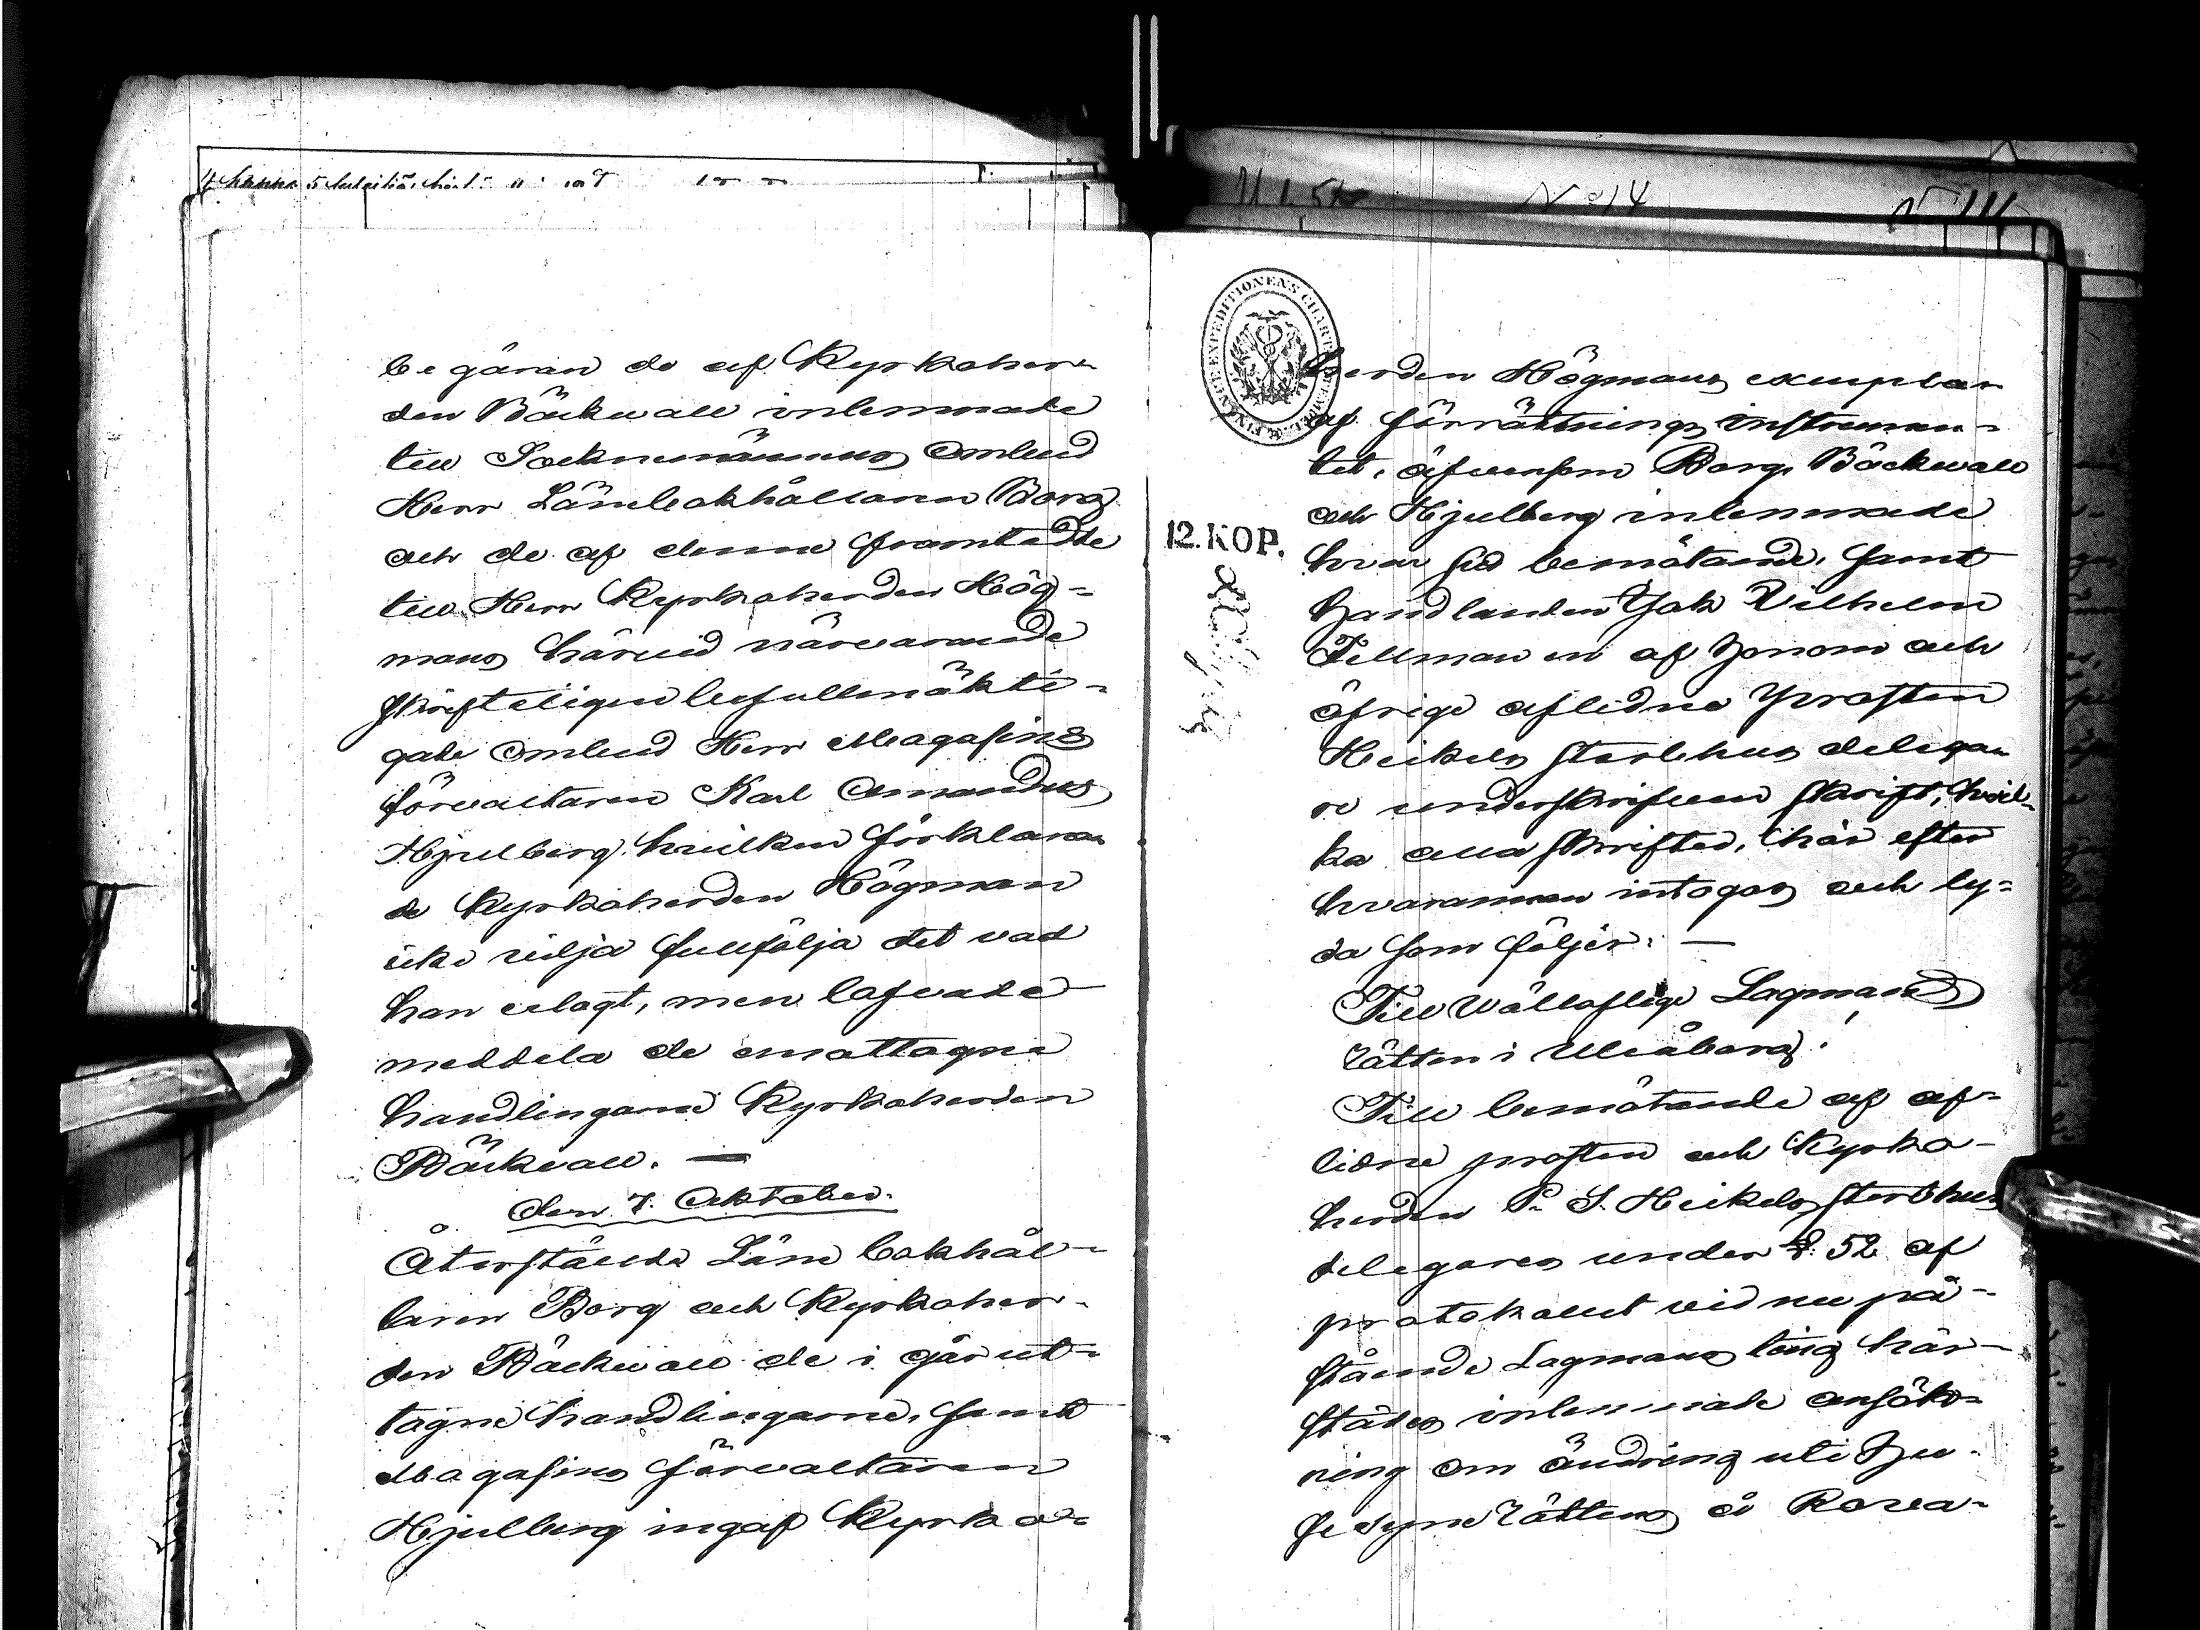 begäran de af Kyrkoher-
den Bäckwall inlemnade
till Socknemännens Ombud
Herr Länsbokhållaren Borg
och de af denne framtedde
till Herr Kyrkoherden Hög-
mans härvid närvarande
skrifteligen befullmäkti-
gade Ombud Herr Magasins
förvaltaren Karl Amandus
Hjulberg, hvilken förklara-
de Kyrkoherden Högman
icke vilja fullfölja det vad
han erlagt, men lafvade
meddela de emottagne
handlingarne Kyrkoherden
Bäckvall. —
den 7. Oktober.
Återstäldes Läns bokhål-
laren Borg och Kyrkoher-
den Bäckwall de i går ut-
tagne handlingarne, samt
Magasins förvaltaren
Hjulberg ingaf Kyrko-
N:o 14
herden Högmans exemplar
af förrättnings instrumen-
tet, äfvensom Borg, Bäckwall
och Hjulberg inlemnade
hvar sid bemötande, samt
handlanden Jak Vilhelm
Tellman en af honom och
öfrige aflidne Prosten
Heikels sterbhus delega-
re underskrifven skrift, hvil-
ka alla skrifter, här efter
hvarannan intogos och ly-
da som följer: —
Till Wällofliga Lagmans
rätten i Uleåborg!
Till bemötande af af-
lidne prosten och Kyrko-
herden P. S. Heikels sterbhus
delegares under §. 52 af
protokollet vid nu på-
stående Lagmans ting här-
städes inlemnade ansök-
ning om ändring uti Hu-
se syne Rättens å Rova-
12. KOP.